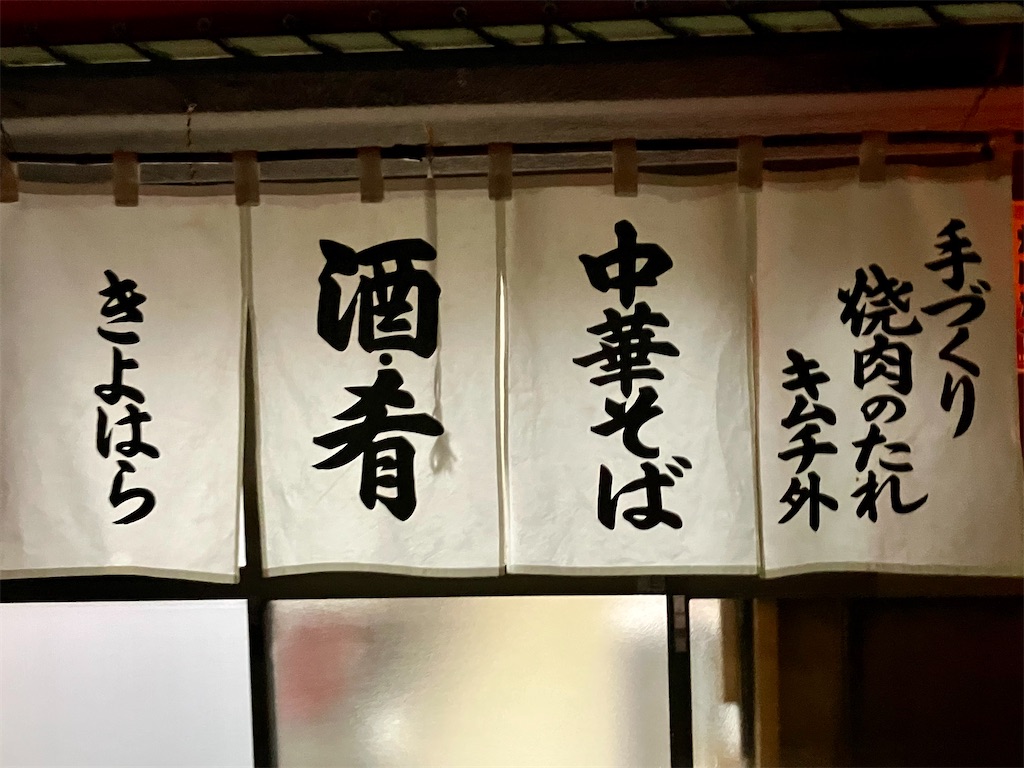 手づくり
焼肉のたれ
キムチ外
中華そば
酒・肴
きよはら